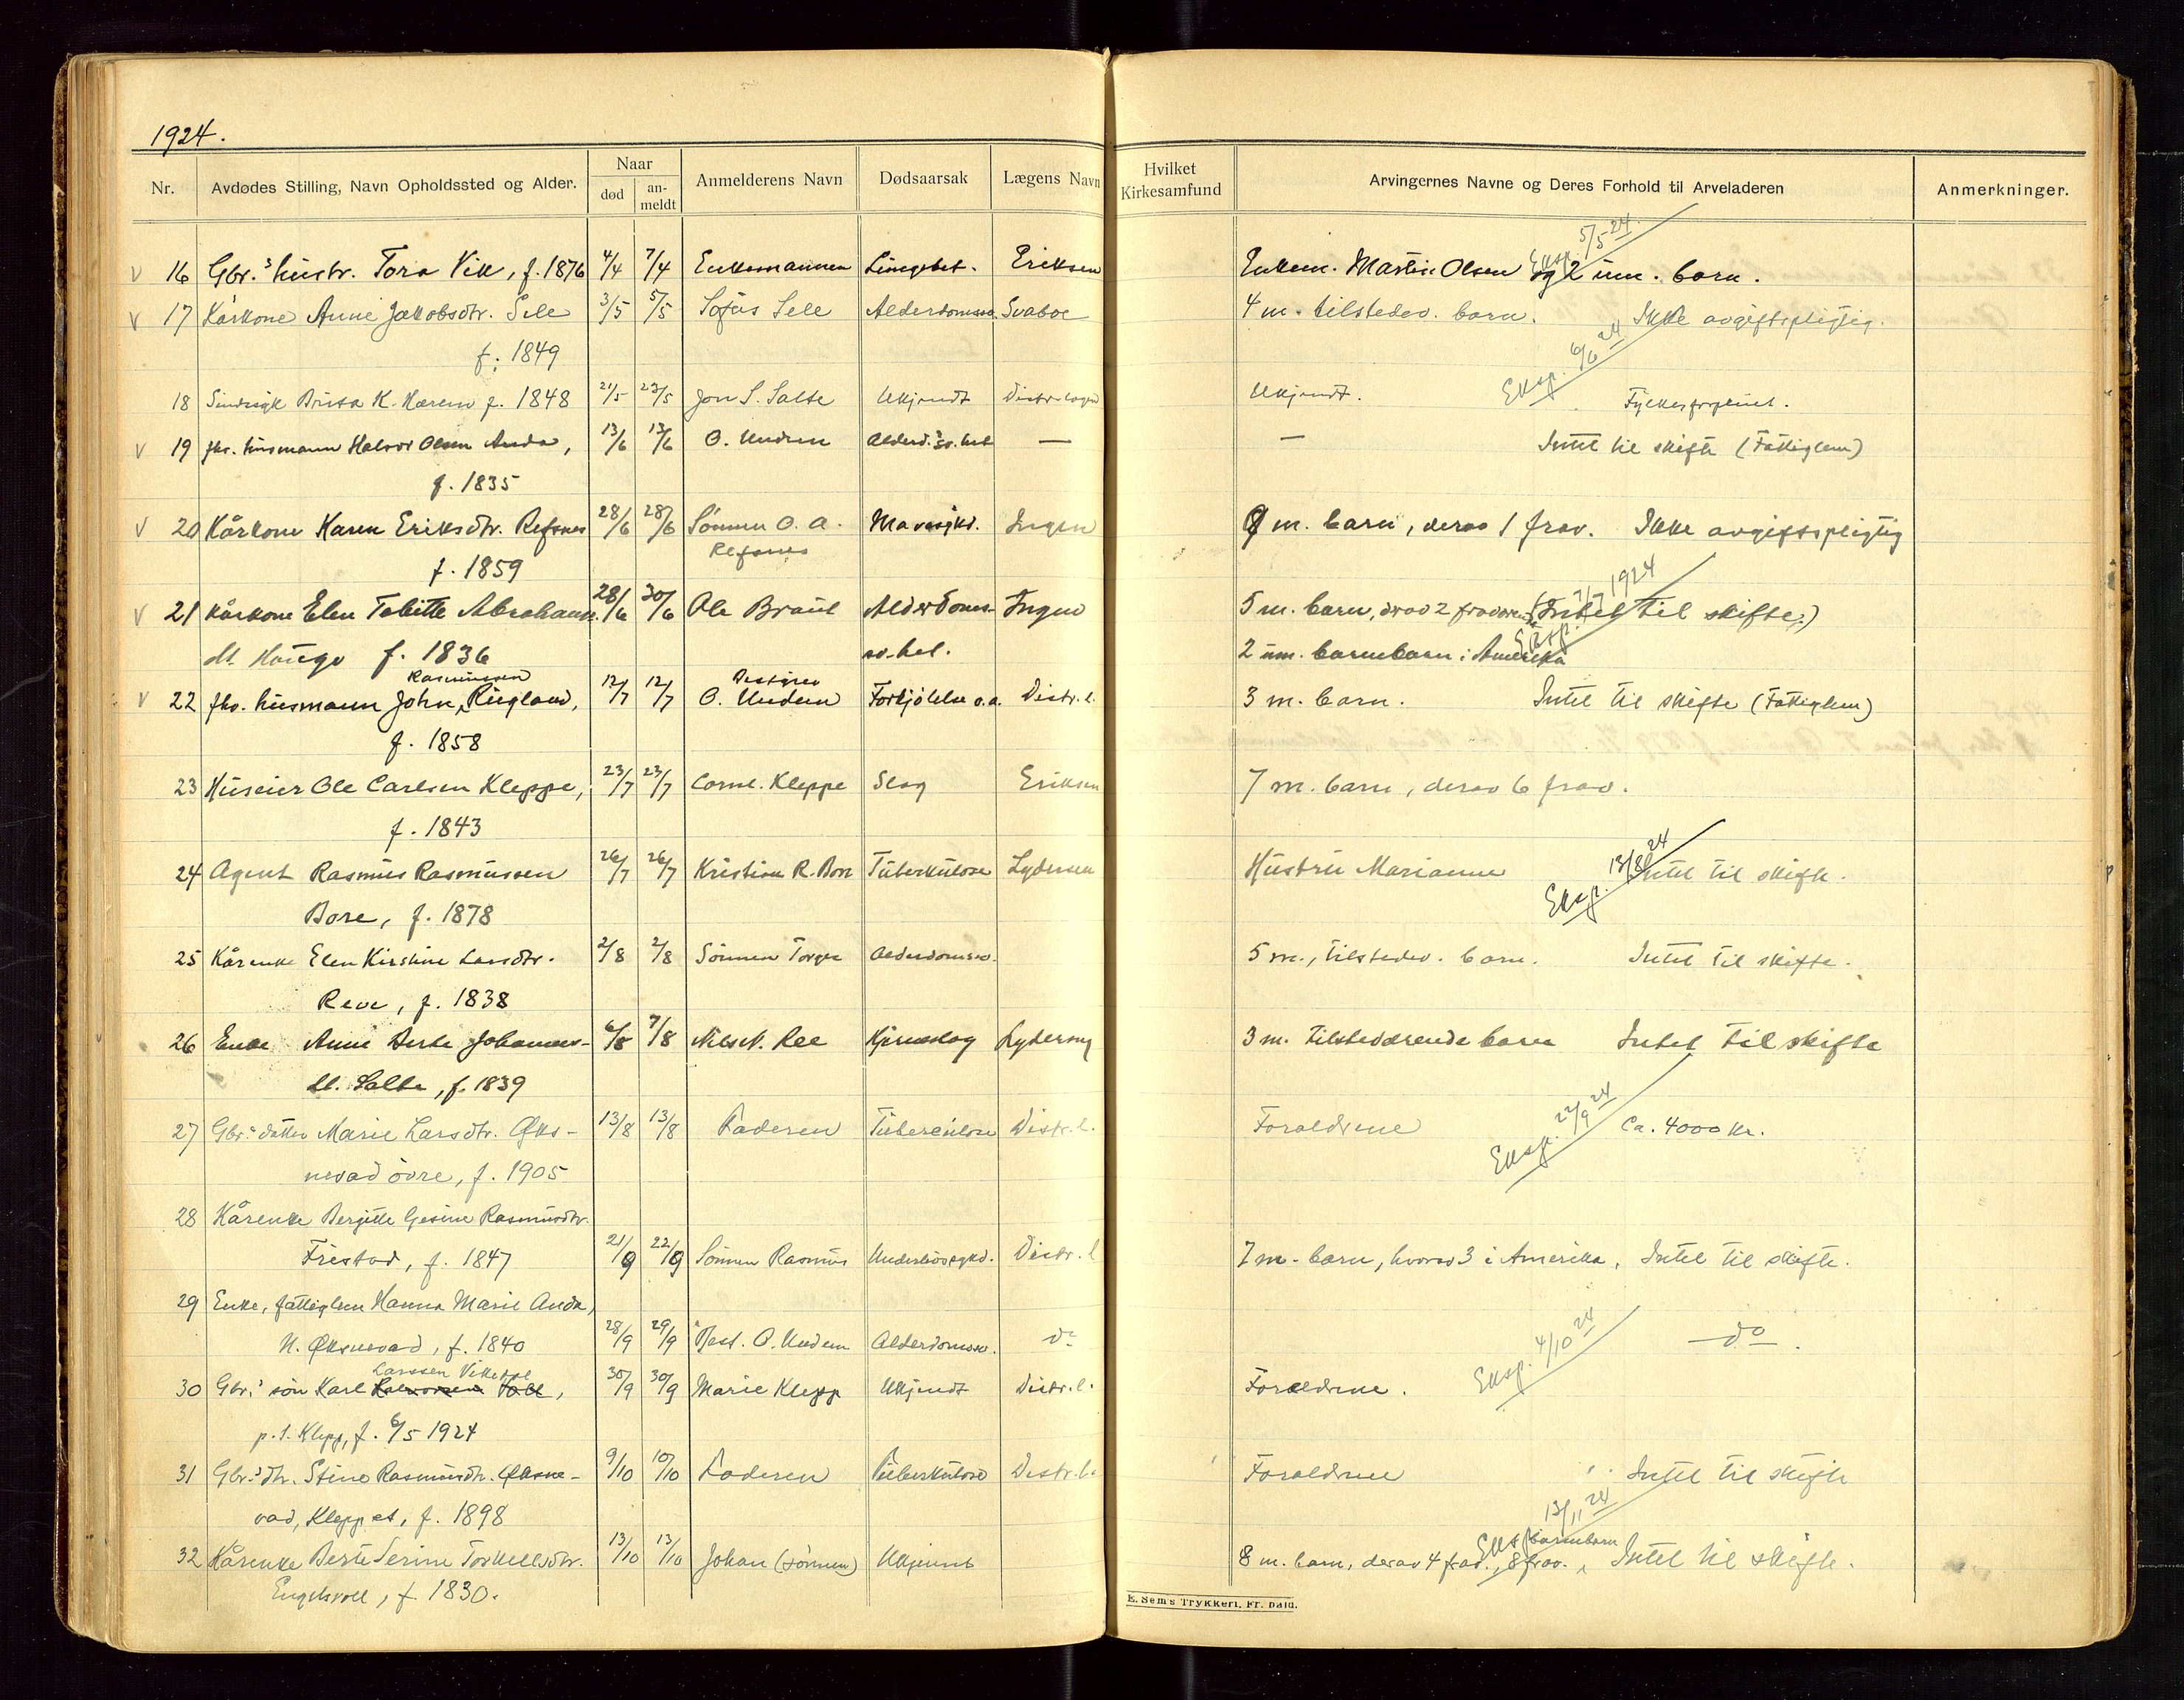 1924.
Nr. Avdødes Stilling, Navn Opholdssted og Alder. Naar død an-meldt Anmelderens Navn Dødsaarsak Lægens Navn Hvilket Kirkesamfund Arvingernes Navne og Deres Forhold til Arveladeren Anmerkninger.
Eksp. 5/5 24
V 16 Gbr.s hustr. Tora Vik, f. 1876 4/4 7/4 Enkemannen Lungebet. Eriksen Enkem. Martin Olsen og 2 um. barn.
V 17 Kårkone Anne Jakobsdtr. Sele 3/5 5/5 Sofus Sele Alderdomssv. Svaboe 4 m. tilstedev. barn. Ikke avgiftspligtig.
f. 1849
Eksp. 6/6 24
18 Sindssyk Brita K. Hæren f. 1848 21/5 23/5 Jon S. Salte Ukjendt Distr.læge Ukjendt. Fylkesforpleiet.
V 19 fhv. husmann Halvor Olsen Anda, 13/6 13/6 O. Undem Alderd.s sv.het — — Intet til skifte (Fattiglem)
f. 1835
V 20 Kårkone Karen Eriksdtr. Refsnes 28/6 28/6 Sönnen O. A. Mavesykd. Ingen 9 m. barn, derav 1 frav. Ikke avgiftspligtig
Refsnes
f. 1859
Eksp. 7/7 1924
V 21 Kårkone Elen Tobitte Abrahams- 28/6 30/6 Ole Braut Alderdoms- Ingen 5 m. barn, drav 2 fraværende (Intet til skifte.)
dt. Haugo f. 1836 sv.het. 2 um. barnebarn i Amerika
Rasmussen Bestyrer
V 22 fhv. husmann John Rugland, 12/7 12/7 O. Undem Forkjölelse o.a. Distr.l. 3 m. barn. Intet til skifte (Fattiglem)
f. 1858
23 Huseier Ole Carlsen Kleppe, 23/7 23/7 Cornel. Kleppe Slag Eriksen 7 m. barn, derav 6 frav.
f. 1843
Eksp. 13/8 24
24 Agent Rasmus Rasmussen 26/7 26/7 Kristian R. Bore Tuberkulose Lydersen Hustru Marianne Intet til skifte.
Bore, f. 1878
25 Kårenke Elen Kirstine Larsdtr. 2/8 2/8 Sönnen Torger Alderdomssv. 5 m., tilstedev. barn. Intet til skifte.
Reve, f. 1838
26 Enke Anne Berte Johannes- 6/8 7/8 Nils N. Ree Hjerneslag Lydersen 3 m. tilstedværende barn Intet til skifte
dt. Salte, f. 1839
Eksp. 22/9 24
27 Gbr.s datter Marie Larsdtr. Øks- 13/8 13/8 Faderen Tuberculose Distr.l. Foreldrene Ca. 4000 kr.
nevad övre, f. 1905
28 Kårenke Bergitte Gesine Rasmusdtr.
Friestad, f. 1847 21/9 22/9 Sönnen Rasmus Underlivssykd. Distr.l 7 m. barn, hvorav 3 i Amerika, Intet til skifte.
29 Enke, fattiglem Hanna Marie Anda,
N. Øksnevad, f. 1840 28/9 29/9 Best. O. Undem Alderdomssv. do do.
Larssen Vikehol
Eksp. 4/10 24
30 Gbr.s sön Karl 30/9 30/9 Marie Klepp Ukjendt Distr.l. Foreldrene.
p.t. Klepp, f. 6/5 1924
31 Gbr.s dtr. Stine Rasmusdtr. Øksne- 9/10 10/10 Faderen Tuberkulose Distr.l. Foreldrene Intet til skifte
vad, Klepp st, f. 1898
Eksp. 13/11 24
barnebarn
32 Kårenke Berte Serine Torkellsdtr. 13/10 13/10 Johan (sönnen) Ukjent 8 m. barn, derav 4 frav., 8 frav. Intet til skifte.
Engelsvoll, f. 1830.
E. Sem's Trykkeri, Fr. hald.